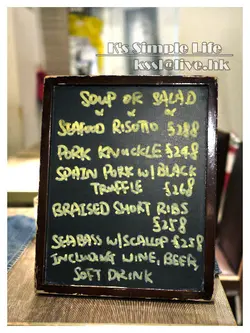 K's Simple Life
kssl@live.hk
SOUP OR SALAD
or or or
SEAFOOD RISOTTO £288
PORK KNUCKLE £248
SPAIN PORK W/ BLACK
TRUFFLE £268
BRAISED SHORT RIBS
£258
SEABASS W/ SCALLOP £258
INCLUDING WINE, BEER,
SOFT DRINK